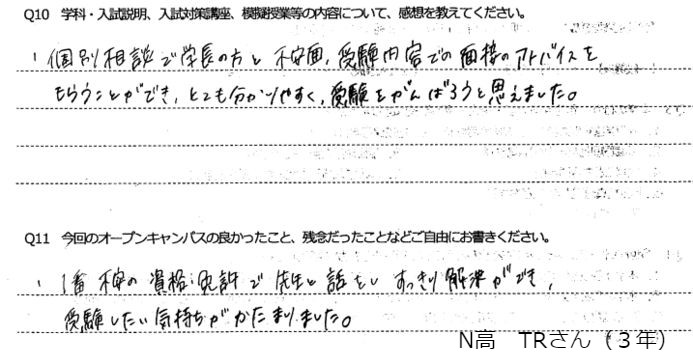 Q10 学科・入試説明、入試対策講座、模擬授業等の内容について、感想を教えてください。
個別相談で学長の方と不安面、受験内容での面接のアドバイスを
もらうことができ、とても分かりやすく、受験をがんばろうと思えました。
Q11 今回のオープンキャンパスの良かったこと、残念だったことなどご自由にお書きください。
1番不安の資格・免許で先生と話をしすっきり解決ができ、
受験したい気持ちがかたまりました。
N高 TRさん（３年）